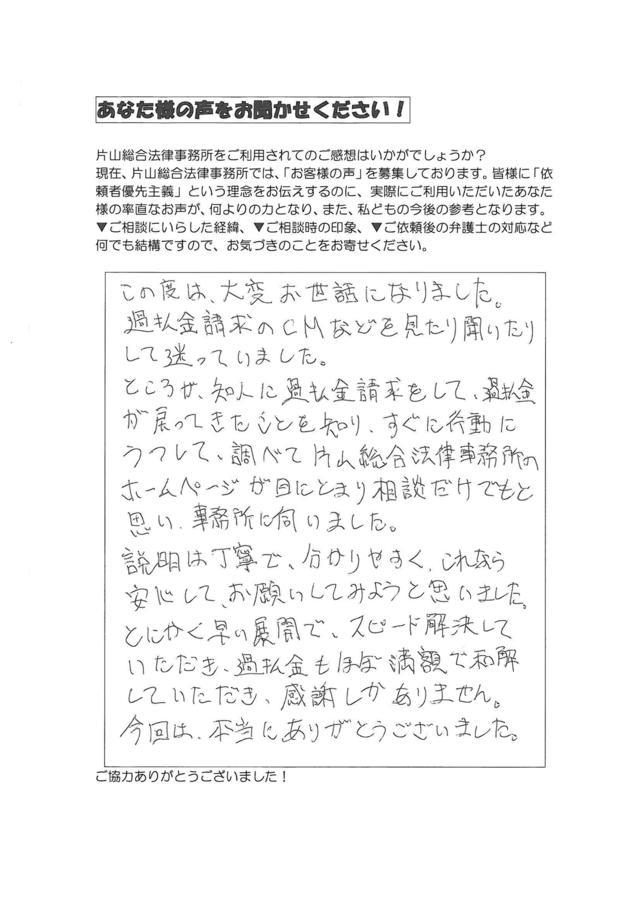 あなた様の声をお聞かせください！
片山総合法律事務所をご利用されてのご感想はいかがでしょうか？
現在、片山総合法律事務所では、「お客様の声」を募集しております。皆様に「依
頼者優先主義」という理念をお伝えするのに、実際にご利用いただいたあなた
様の率直なお声が、何よりの力となり、また、私どもの今後の参考となります。
▼ご相談にいらした経緯、▼ご相談時の印象、▼ご依頼後の弁護士の対応など
何でも結構ですので、お気づきのことをお寄せください。
この度は、大変お世話になりました。
過払金請求のCMなどを見たり聞いたり
して迷っていました。
ところが、知人に過払金請求をして、過払金
が戻ってきたことを知り、すぐに行動に
うつして、調べて片山総合法律事務所の
ホームページが目にとまり相談だけでもと
思い、事務所に伺いました。
説明は丁寧で、分かりやすく、これなら
安心して、お願いしてみようと思いました。
とにかく早い展開で、スピード解決して
いただき、過払金もほぼ満額で和解
していただき、感謝しかありません。
今回は、本当にありがとうございました。
ご協力ありがとうございました！